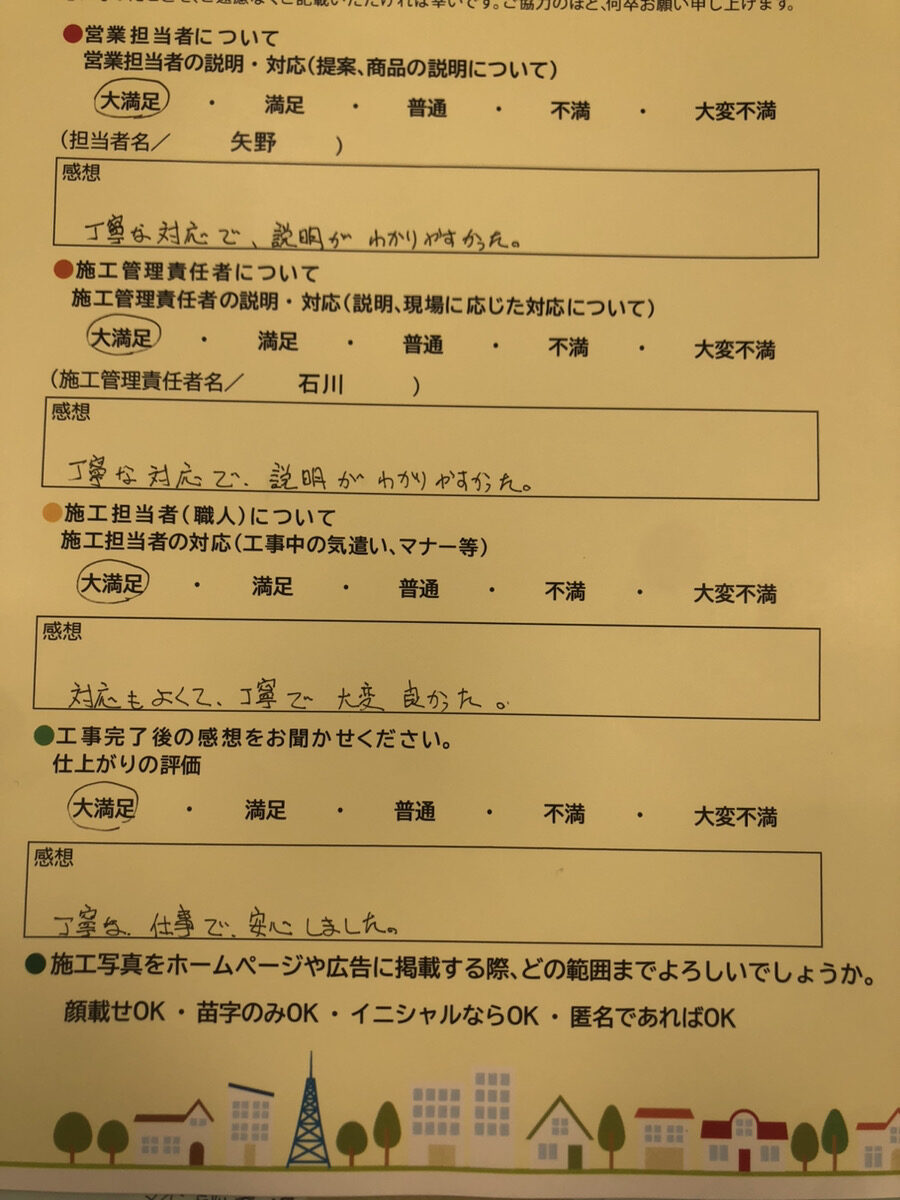 ご遠慮なくご記載いただければ幸いです。ご協力のほど、何卒お願い申し上げます。
●営業担当者について
営業担当者の説明・対応（提案、商品の説明について）
大満足 ・ 満足 ・ 普通 ・ 不満 ・ 大変不満
（担当者名／ 矢野 ）
感想
丁寧な対応で、説明が わかりやすかった。
●施工管理責任者について
施工管理責任者の説明・対応（説明、現場に応じた対応について）
大満足 ・ 満足 ・ 普通 ・ 不満 ・ 大変不満
（施工管理責任者名／ 石川 ）
感想
丁寧な対応で、説明が わかりやすかった。
●施工担当者（職人）について
施工担当者の対応（工事中の気遣い、マナー等）
大満足 ・ 満足 ・ 普通 ・ 不満 ・ 大変不満
感想
対応もよくて、丁寧で 大変 良かった。
●工事完了後の感想をお聞かせください。
仕上がりの評価
大満足 ・ 満足 ・ 普通 ・ 不満 ・ 大変不満
感想
丁寧な 仕事で、安心しました。
●施工写真をホームページや広告に掲載する際、どの範囲までよろしいでしょうか。
顔載せOK ・ 苗字のみOK ・ イニシャルならOK ・ 匿名であればOK